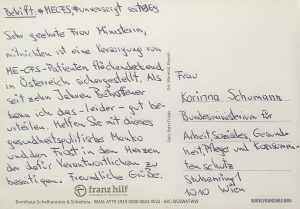 Betrifft: #MECFS, #unversorgt seit 1969
Sehr geehrte Frau Ministerin,
mitnichten ist eine Versorgung von
ME-CFS-Patienten flächendeckend
in Österreich sichergestellt. Als
seit zehn Jahren
kann ich das - leider - gut be-
urteilen. Helfen Sie mit dieses
gesundheitspolitische Manko
und den Frost in den Herzen
der dafür Verantwortlichen zu
beseitigen. Freundliche Grüße.
Frau
Korinna Schumann
Bundesministerium für
Arbeit, Soziales, Gesund-
heit Pflege und Konsumen-
tenschutz
Stubenring 1
1010 Wien
franz hilf
Bankhaus Schelhammer & Schattera
WWW.FRANZHILF.AT